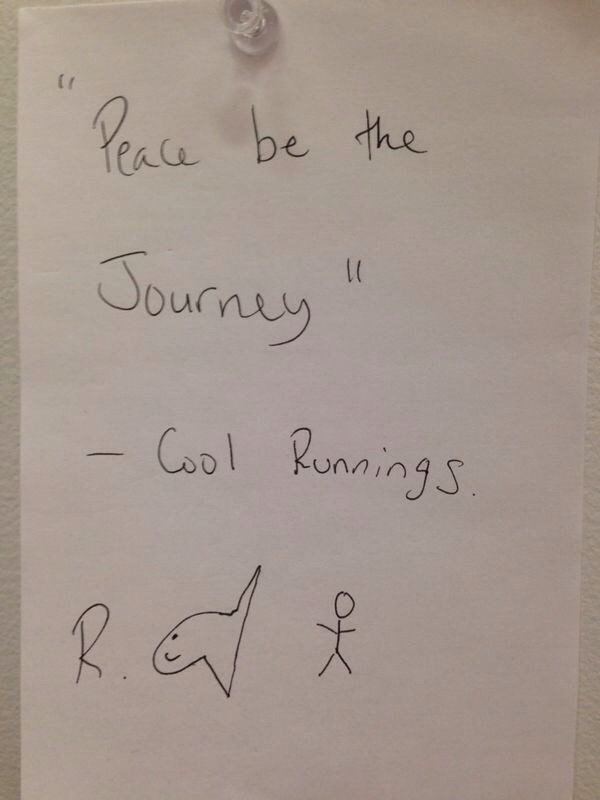 "Peace be the
Journey"
- Cool Runnings.
R.